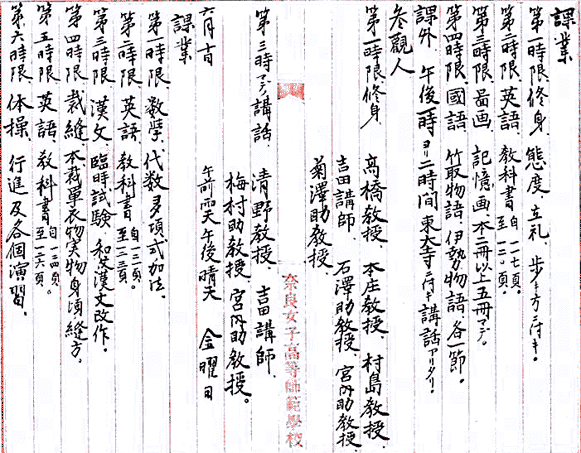 課業
第一時限、修身、態度、立礼、歩キ方ニ付キ。
第二時限、英語、教科書自一一七頁。至一二一頁。
第三時限、啚画、記憶画、本二冊以上五冊マデ。
第四時限、國語、竹取物語、伊勢物語、各一節。
課外 午後一時ヨリ二時間東大寺ニ付キ講話アリタリ。
参観人
第一時限、修身、高橋教授、本庄教授、村島教授、
吉田講師、石澤助教授、宮内助教授
菊澤助教授、
第三時マデノ講話、清野教授、吉田講師、
梅村助教授、宮内助教授。
六月十日 午前雨天午後晴天 金曜日
課業
第一時限、数学、代数多項式加法、
第二時限、英語、教科書自一二一頁。至一二三頁。
第三時限、漢文、臨時試験、和芝漢文改作。
第四時限、裁縫、本裁單衣物実物身頃縫方、
第五時限、英語、教科書自一二四頁。至一二六頁。
第六時限、体操、行進及各個演習、
奈良女子高等師範學校